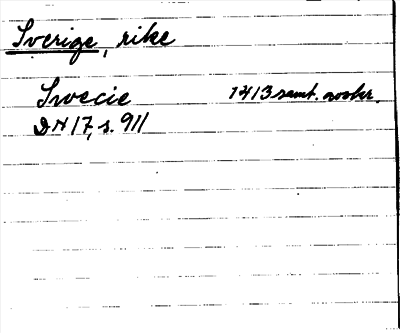 Sverige, rike
Swecie 1413 samt. avskr.
DN 17, s. 911